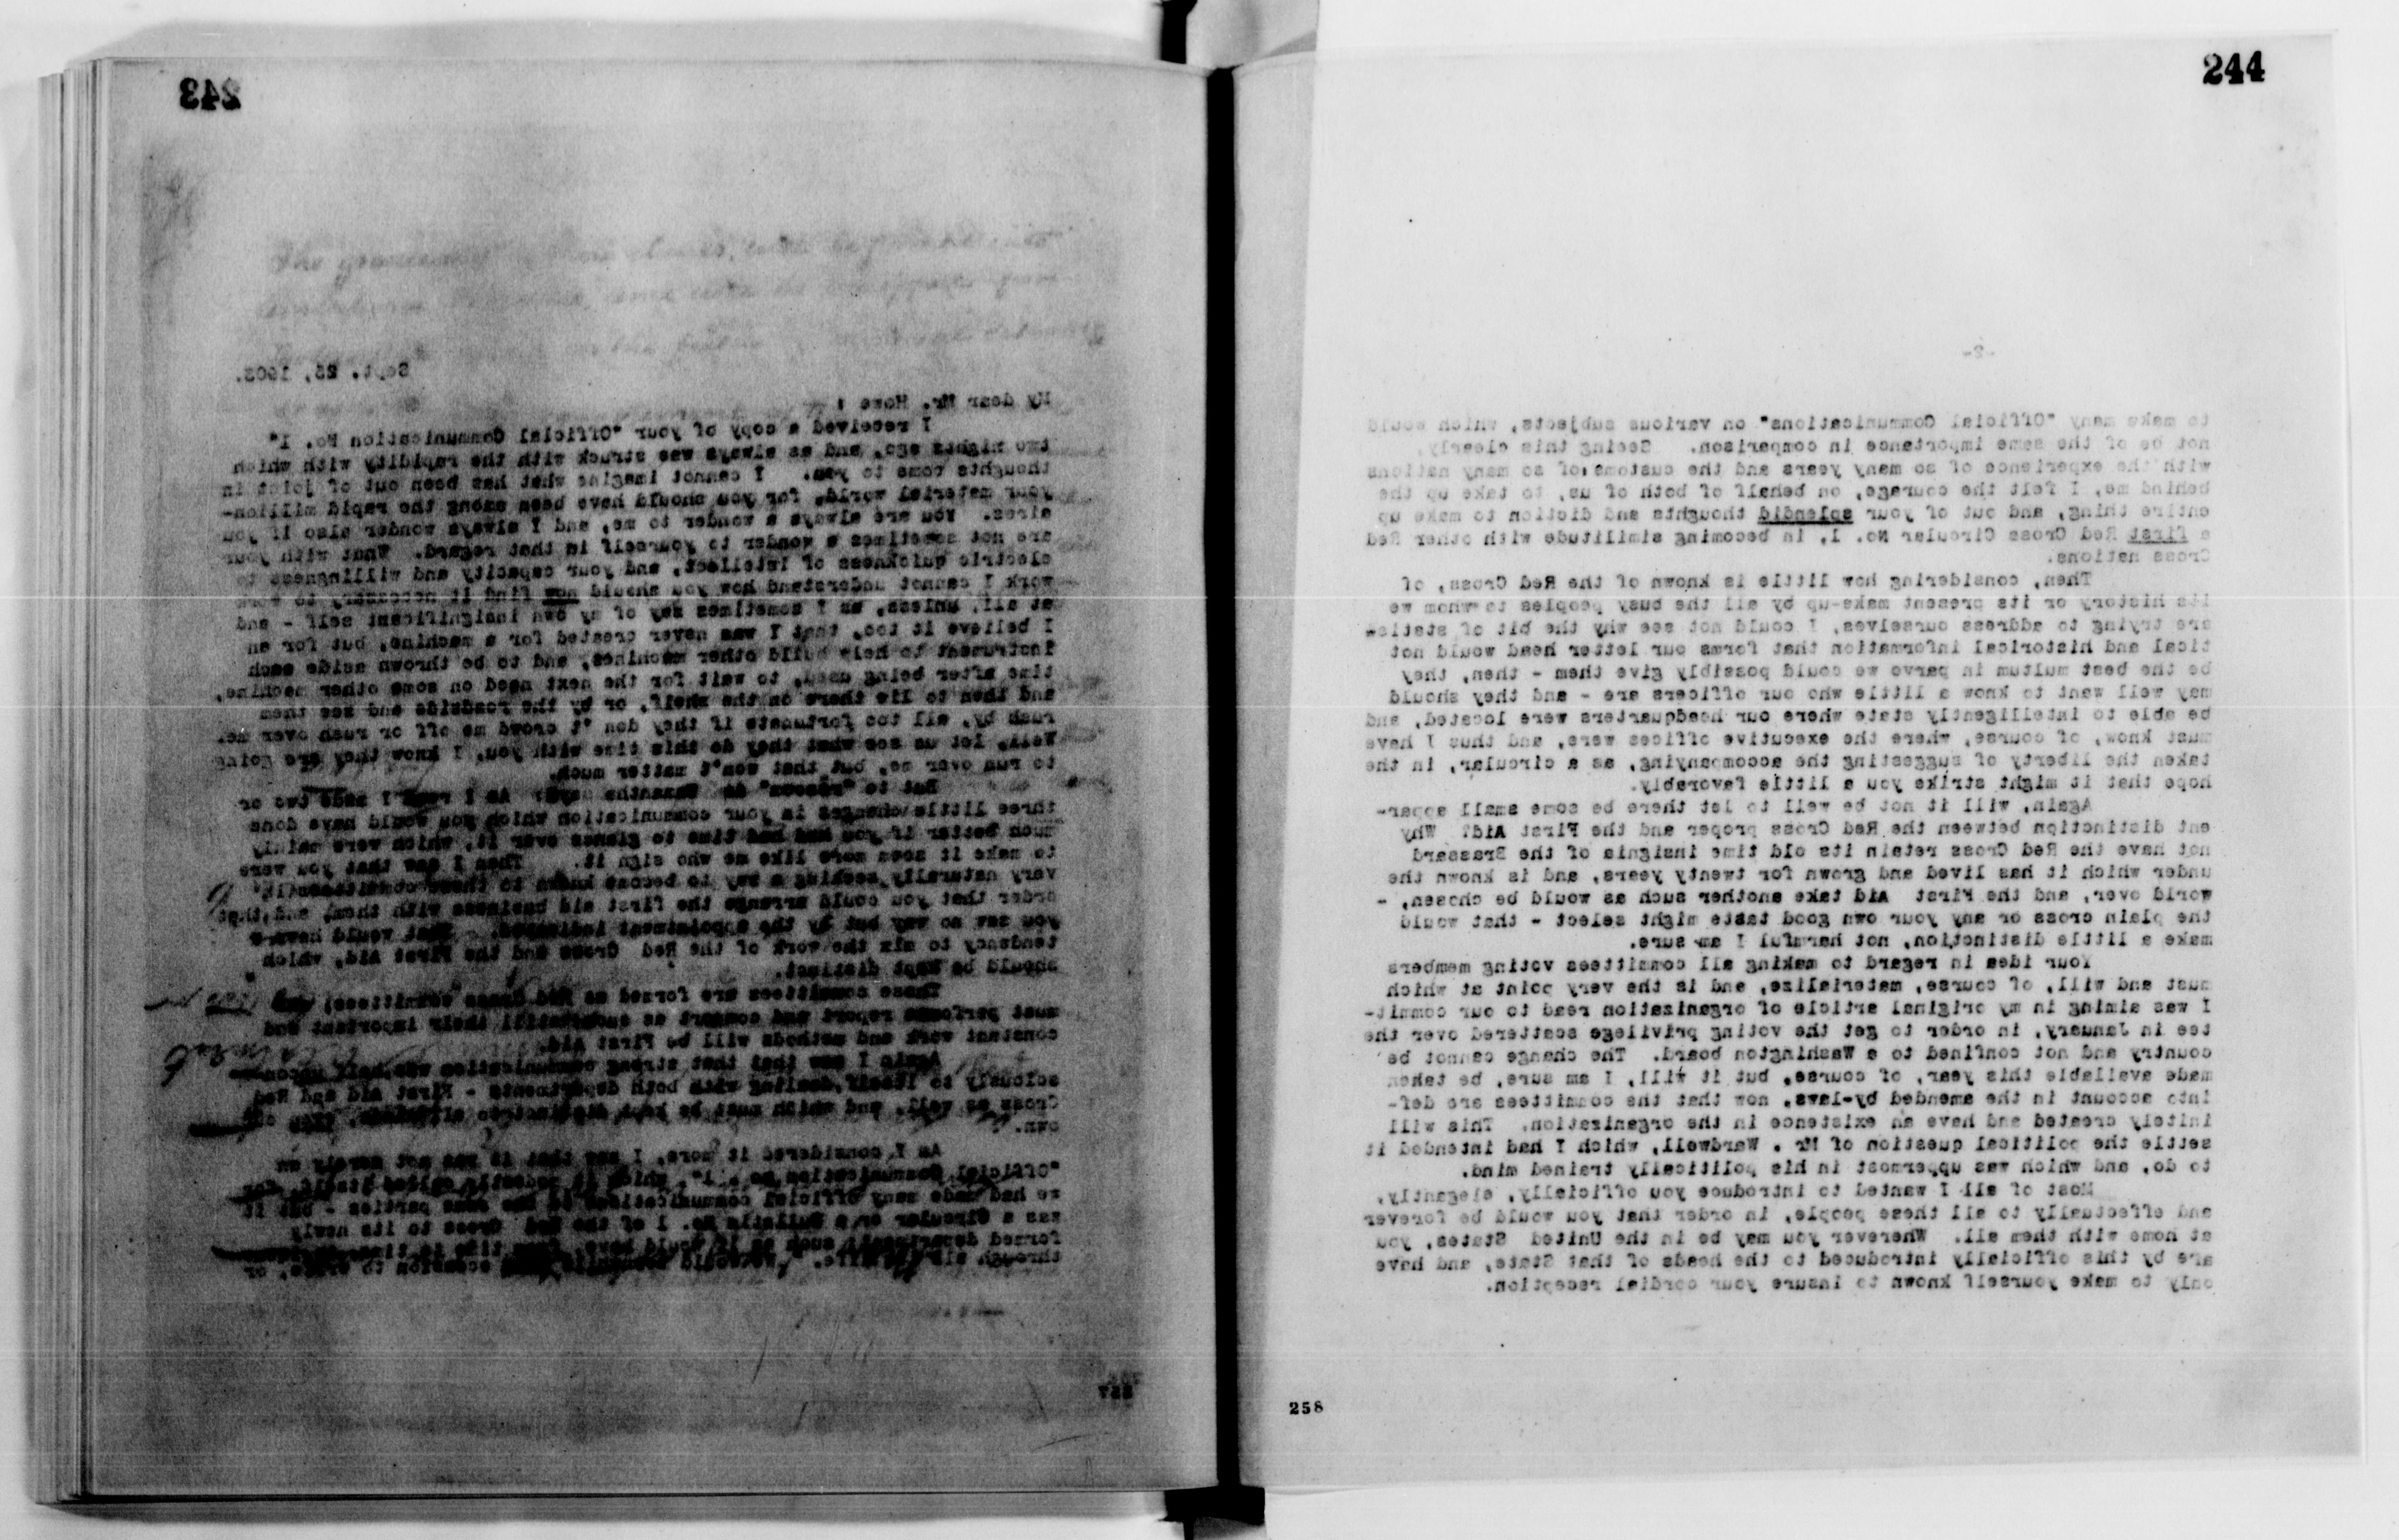 243
Sept. 25, 1903.
My dear Mr. Howe :
I received a copy of your "Official Communication No. 1"
two nights ago, and as always was struck with the rapidity with which
thoughts come to you. I cannot imagine what has been out of joint in
your material world, for you should have been among the rapid million-
aires. You are always a wonder to me, and I always wonder also if you
are not sometimes a wonder to yourself in that regard. What with your
electric quickness of intellect, and your capacity and willingness to
work I cannot understand how you should now find it necessary to work
at all, unless, as I sometimes say of my own insignificant self - and
I believe it too, that I was never created for a machine, but for an
instrument to help build other machines, and to be thrown aside each
time after being used, to wait for the next need on some other machine,
and then to lie there on the shelf, or by the roadside and see them
rush by, all too fortunate if they don 't crowd me off or rush over me.
Well, let us see what they do this time with you, I know they are going
to run over me, but that won't matter much.
But to "reason" as Samantha says: As I read I made two or
three little changes in your communication which you would have done
much better if you had had time to glance over it, which were mainly
to make it seem more like me who sign it. Then I saw that you were
very naturally seeking a way to become known to these committees in
order that you could arrange the first aid business with them, and that
you saw no way but by the appointment indicated. That would have a
tendency to mix the work of the Red Cross and the First Aid, which
should be kept distinct.
These committees are formed as Red Cross committees,
must perform report and consort as such still their important and
constant work and methods will be First Aid.
Again I saw that that strong communication was half uncon-
sciously to itself dealing with both departments - First Aid and Red
Cross as well, and which must be kept distinct
own.
As I considered it more, I saw that it was not merely an
"Official Communication No. 1", which it modestly called itself, for
we had made many official communications to the same parties - but it
was a Circular or a Bulletin No. 1 of the Red Cross to its newly
formed department, such as it would have from time to time
through all its life. occasion to write, or
257
244
-2-
to make many "Official Communications" on various subjects, which would
not be of the same importance in comparison. Seeing this clearly,
with the experience of so many years and the customs of so many nations
behind me, I felt the courage, on behalf of both of us, to take up the
entire thing, and out of your splendid thoughts and diction to make up
a First Red Cross Circular No. 1, in becoming similitude with other Red
Cross nations.
Then, considering how little is known of the Red Cross, of
its history or its present make-up by all the busy peoples to whom we
are trying to address ourselves, I could not see why the bit of statis-
tical and historical information that forms our letter head would not
be the best multum in parvo we could possibly give them - then, they
may well want to know a little who our officers are - and they should
be able to intelligently state where our headquarters were located, and
must know, of course, where the executive offices were, and thus I have
taken the liberty of suggesting the accompanying, as a circular, in the
hope that it might strike you a little favorably.
Again, will it not be well to let there be some small appar-
ent distinction between the Red Cross proper and the First Aid? Why
not have the Red Cross retain its old time insignia of the Brassard
under which it has lived and grown for twenty years, and is known the
world over, and the First Aid take another such as would be chosen, -
the plain cross or any your own good taste might select - that would
make a little distinction, not harmful I am sure.
Your idea in regard to making all committees voting members
must and will, of course, materialize, and is the very point at which
I was aiming in my original article of organization read to our commit-
tee in January, in order to get the voting privilege scattered over the
country and not confined to a Washington board. The change cannot be
made available this year, of course, but it will, I am sure, be taken
into account in the amended by-laws, now that the committees are def-
initely created and have an existence in the organization. This will
settle the political question of Mr . Wardwell, which I had intended it
to do, and which was uppermost in his politically trained mind.
Most of all I wanted to introduce you officially, elegantly,
and effectually to all these people, in order that you would be forever
at home with them all. Wherever you may be in the United States, you
are by this officially introduced to the heads of that State, and have
only to make yourself known to insure your cordial reception.
258